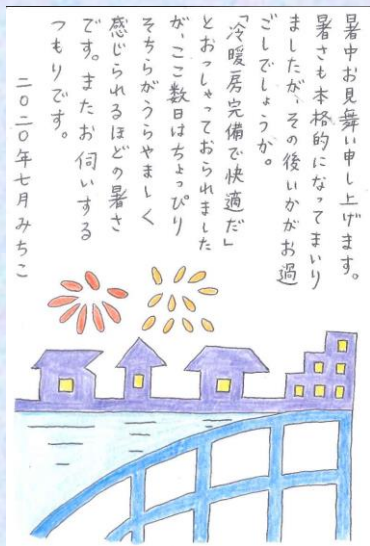 暑中お見舞い申し上げます。
暑さも本格的になってまいり
ましたが、その後いかがお過
ごしでしょうか。
「冷暖房完備で快適だ」
とおっしゃっておられました
が、ここ数日はちょっぴり
そちらがうらやましく
感じられるほどの暑さ
です。またお伺いする
つもりです。
二〇二〇年七月みちこ